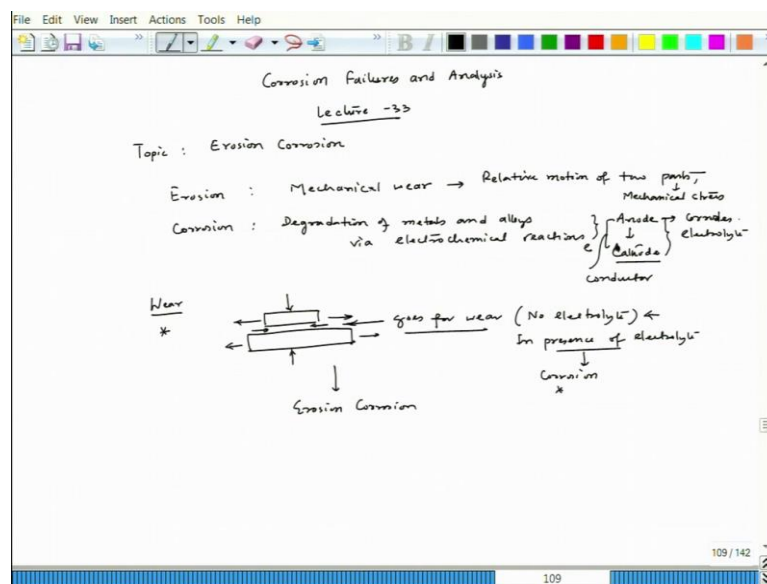 File Edit View Insert Actions Tools Help
Corrosion Failures and Analysis
Lecture -33
Topic : Erosion Corrosion
Erosion : Mechanical wear → Relative motion of two parts,
Mechanical stress
Corrosion : Degradation of metals and alloys
via electrochemical reactions
Anode → Corrodes.
e
Cathode
electrolyte
conductor
Wear
*
goes for wear (No electrolyte) ←
In presence of electrolyte
Corrosion
*
Erosion Corrosion
109 / 142
109